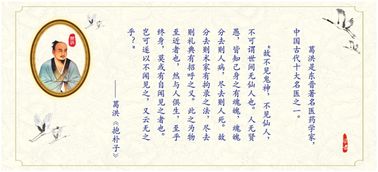 葛洪是东晋著名医药学家，
中国古代十大名医之一。
“故不见鬼神，不见仙人，
不可谓世间无仙人也。人无贤
愚，皆知己身之有魂魄，魂魄
分去则人病，尽去则人死。故
分去则术家有拘录之法，尽去
则礼典有招呼之义。此之为物
至近者也，然与人俱生，至乎
终身，莫或有自闻见之者也。
岂可遂以不闻见之，又云无之
乎？”
——葛洪《抱朴子》